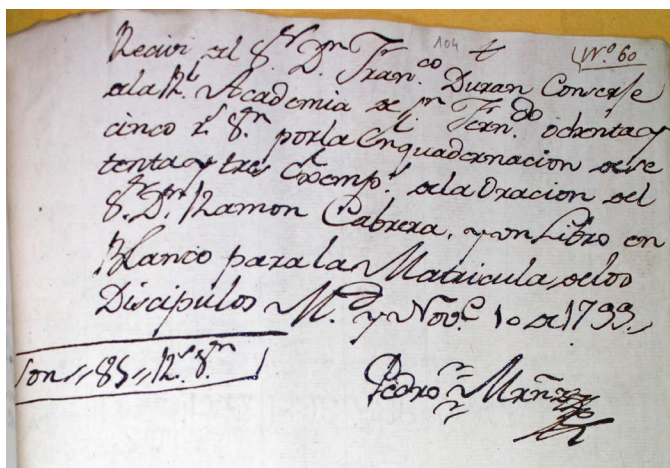 104
Nº 60
Recivi del Sr. Dn. Franco. Duran Conserje
de la Rl. Academia de Sn. Ferndo. ochenta y
cinco rs. Vn. por la Enquadernacion de se
tenta y tres Exemps. de la Oracion del
Sr. Dn. Ramon Cabrera, y un Libro en
Blanco para la Matricula de los
Discipulos Md. y Nove. 10 de 1799
Son 85 Rs. Vn.
Pedro